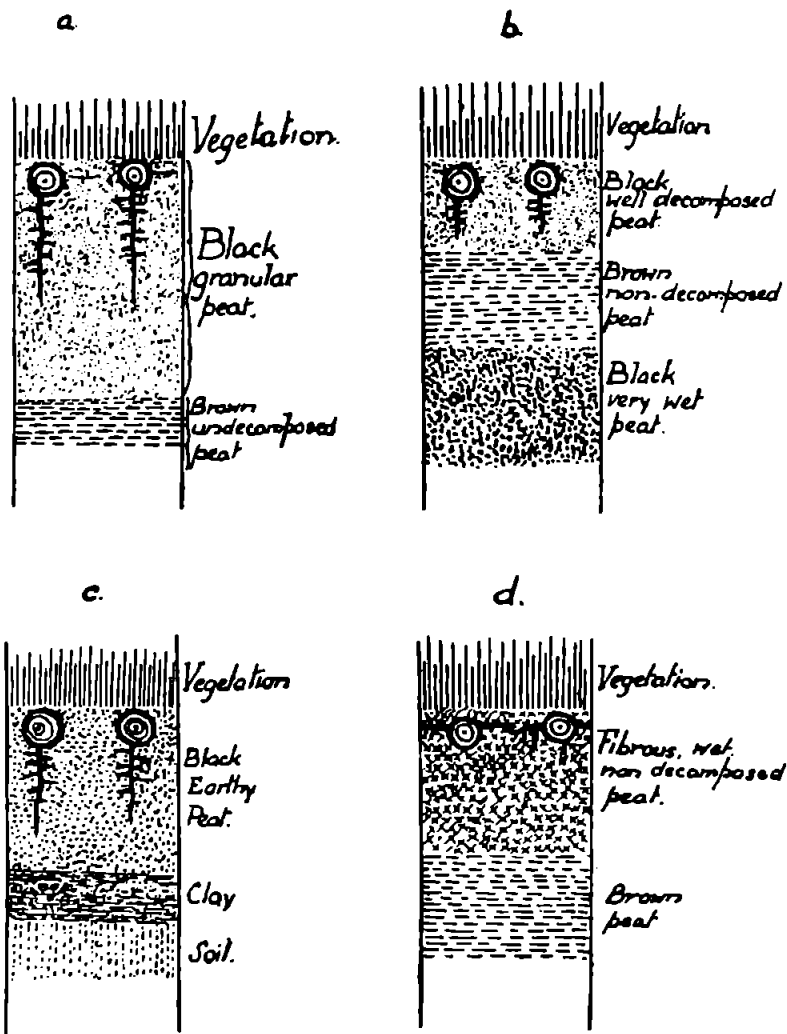 a
Vegetation.
Black
granular
peat.
Brown
undecomposed
peat
b
Vegetation
Black
well decomposed
peat.
Brown
non-decomposed
peat
Black
very wet
peat.
c.
Vegetation
Black
Earthy
Peat.
Clay
Soil.
d.
Vegetation.
Fibrous, wet,
non decomposed
peat.
Brown
peat